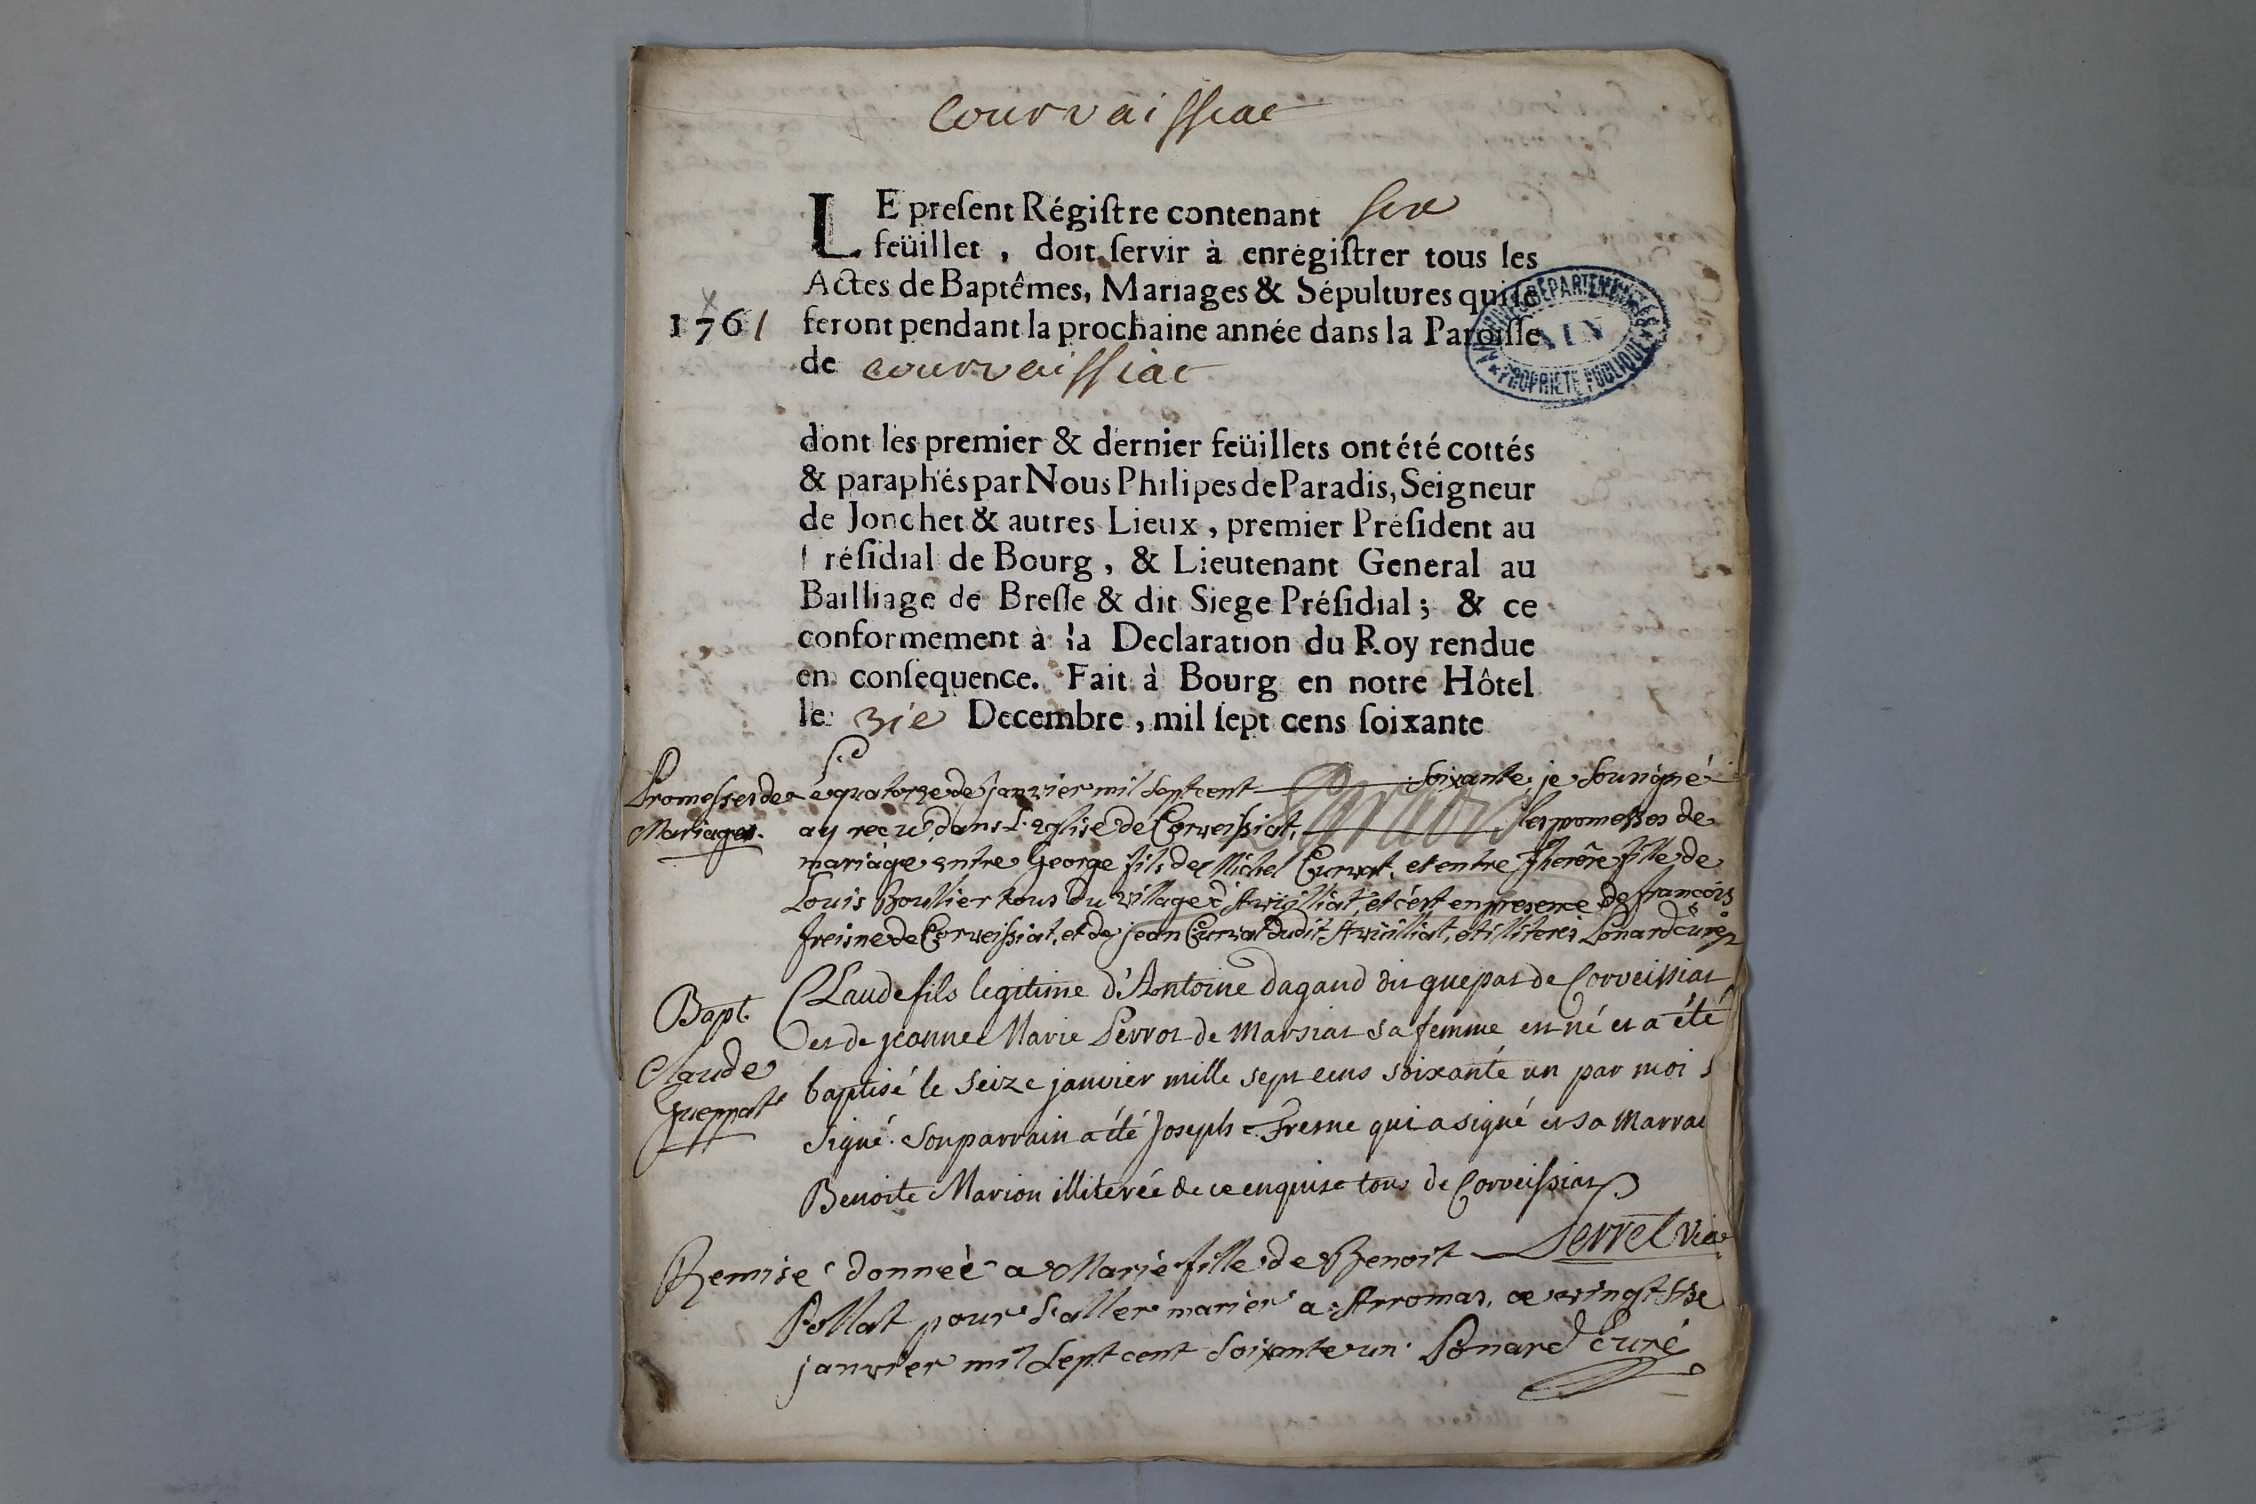 Courvaissiat
LE preſent Régiſtre contenant six
feüillet, doit ſervir à enrégiſtrer tous les
Actes de Baptêmes, Mariages & Sépultures qui ſe
1761 feront pendant la prochaine année dans la Paroiſſe
de Courvaissiat
ARCHIVES DÉPARTEMENTALES
AIN
PROPRIÉTÉ PUBLIQUE
dont les premier & dernier feüillets ont été cottés
& paraphés par Nous Philipes de Paradis, Seigneur
de Jonchet & autres Lieux, premier Préſident au
Préſidial de Bourg, & Lieutenant General au
Bailliage de Breſſe & dit Siege Préſidial; & ce
conformement à la Declaration du Roy rendue
en conſequence. Fait à Bourg en notre Hôtel
le 31e Decembre, mil ſept cens ſoixante
Promesses de Le quatorze de janvier mil sept cent soixante, je sousigné
Mariages. ay recu dans l'Eglise de Corveissiat, les promesses de
mariage entre George fils de Michel Curvat, et entre fille de
Louis Boullier tous du village d'Arvilliat, et c'est en presence de francois
freisne de Corveissiat, et de jean Curvat dudit Arvilliat, et illiterés Ponard Curé
Bapt. Claude fils legitime d'Antoine dagand dit guepat de Corveissiat
et de jeanne Marie Perrot de Marsiat sa femme est né et a été
Claude
Gueppat baptisé le seize janvier mille sept cens soixante un par moi s
signé. Son parrain a été Joseph Fresne qui a signé et sa Marrai
Benoite Marion illiterée de ce enquise tous de Corveissiat
Serret Vic
Remise donneé a Marie fille de Benoit
Pollat pour s'aller marier a Arromas, ce vingt six
janvier mil sept cent soixante un. Ponard Curé